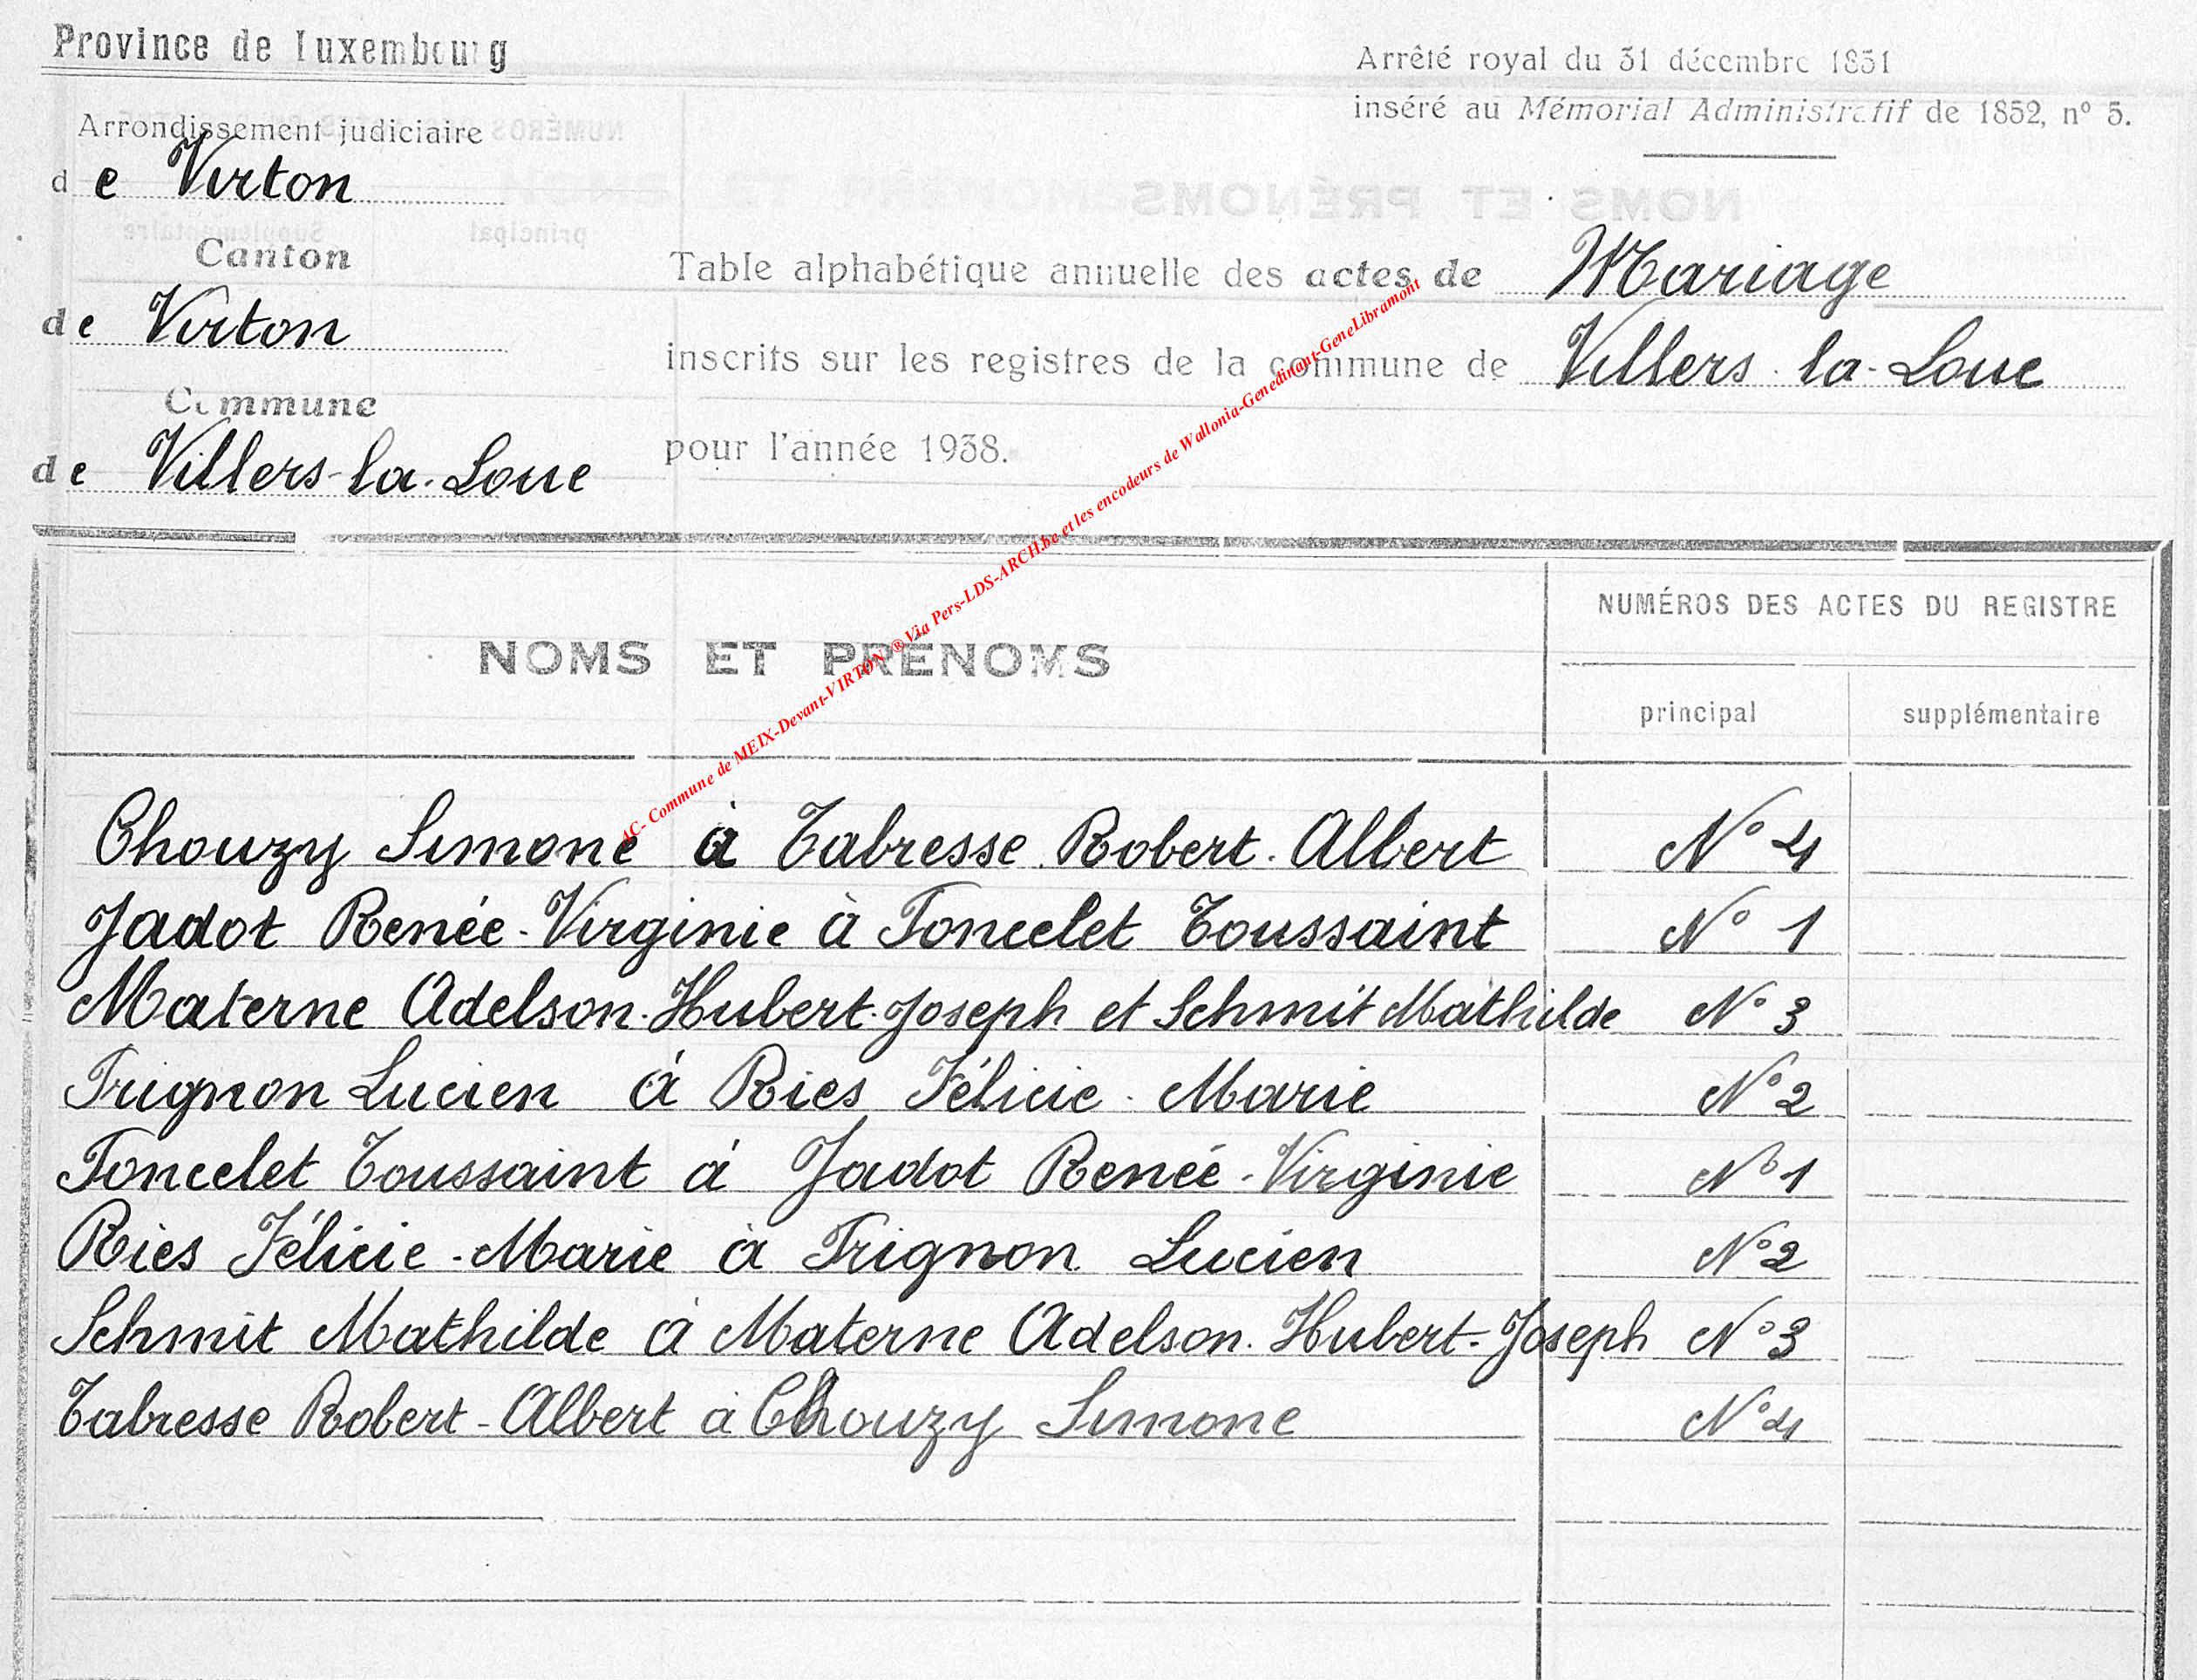 Province de Luxembourg
Arrêté royal du 31 décembre 1851
inséré au Mémorial Administratif de 1852, n° 5.
Arrondissement judiciaire
de Virton
Canton
de Virton
Commune
de Villers-la-Loue
Table alphabétique annuelle des actes de Mariage
inscrits sur les registres de la commune de Villers-la-Loue
pour l'année 1938.
AC- Commune de MEIX-Devant-VIRTON ® Via Pers-LDS-ARCH.be et les encodeurs de Wallonia-Genedinant-GeneLibramont
NOMS ET PRÉNOMS
NUMÉROS DES ACTES DU REGISTRE
principal supplémentaire
Chouzy Simone à Tabresse Robert-Albert N° 4
Jadot Renée-Virginie à Poncelet Toussaint N° 1
Materne Adelson-Hubert-Joseph et Schmit Mathilde N° 3
Prignon Lucien à Ries Félicie-Marie N° 2
Poncelet Toussaint à Jadot Renée-Virginie N° 1
Ries Félicie-Marie à Prignon Lucien N° 2
Schmit Mathilde à Materne Adelson-Hubert-Joseph N° 3
Tabresse Robert-Albert à Chouzy Simone N° 4